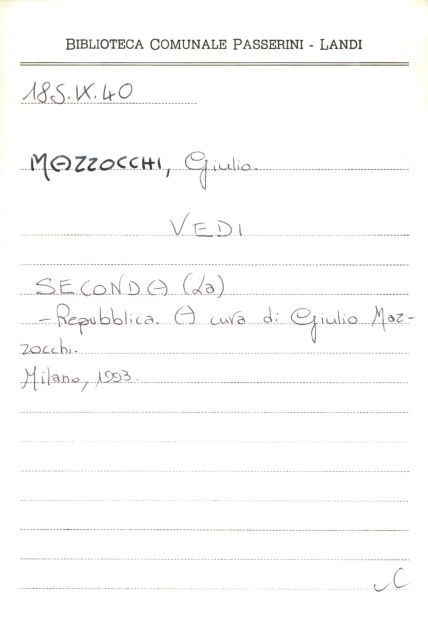 BIBLIOTECA COMUNALE PASSERINI - LANDI
18S.IX.40
MAZZOCCHI, Giulio.
VEDI
SECONDA (La)
-Repubblica. A cura di Giulio Maz-
zocchi.
Milano, 1993.